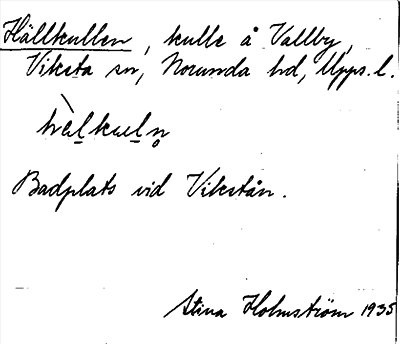 Hällkullen, kulle å Vallby,
Viksta sn, Norunda hd, Upps. l.
Badplats vid Vikstån.
Stina Holmström 1935